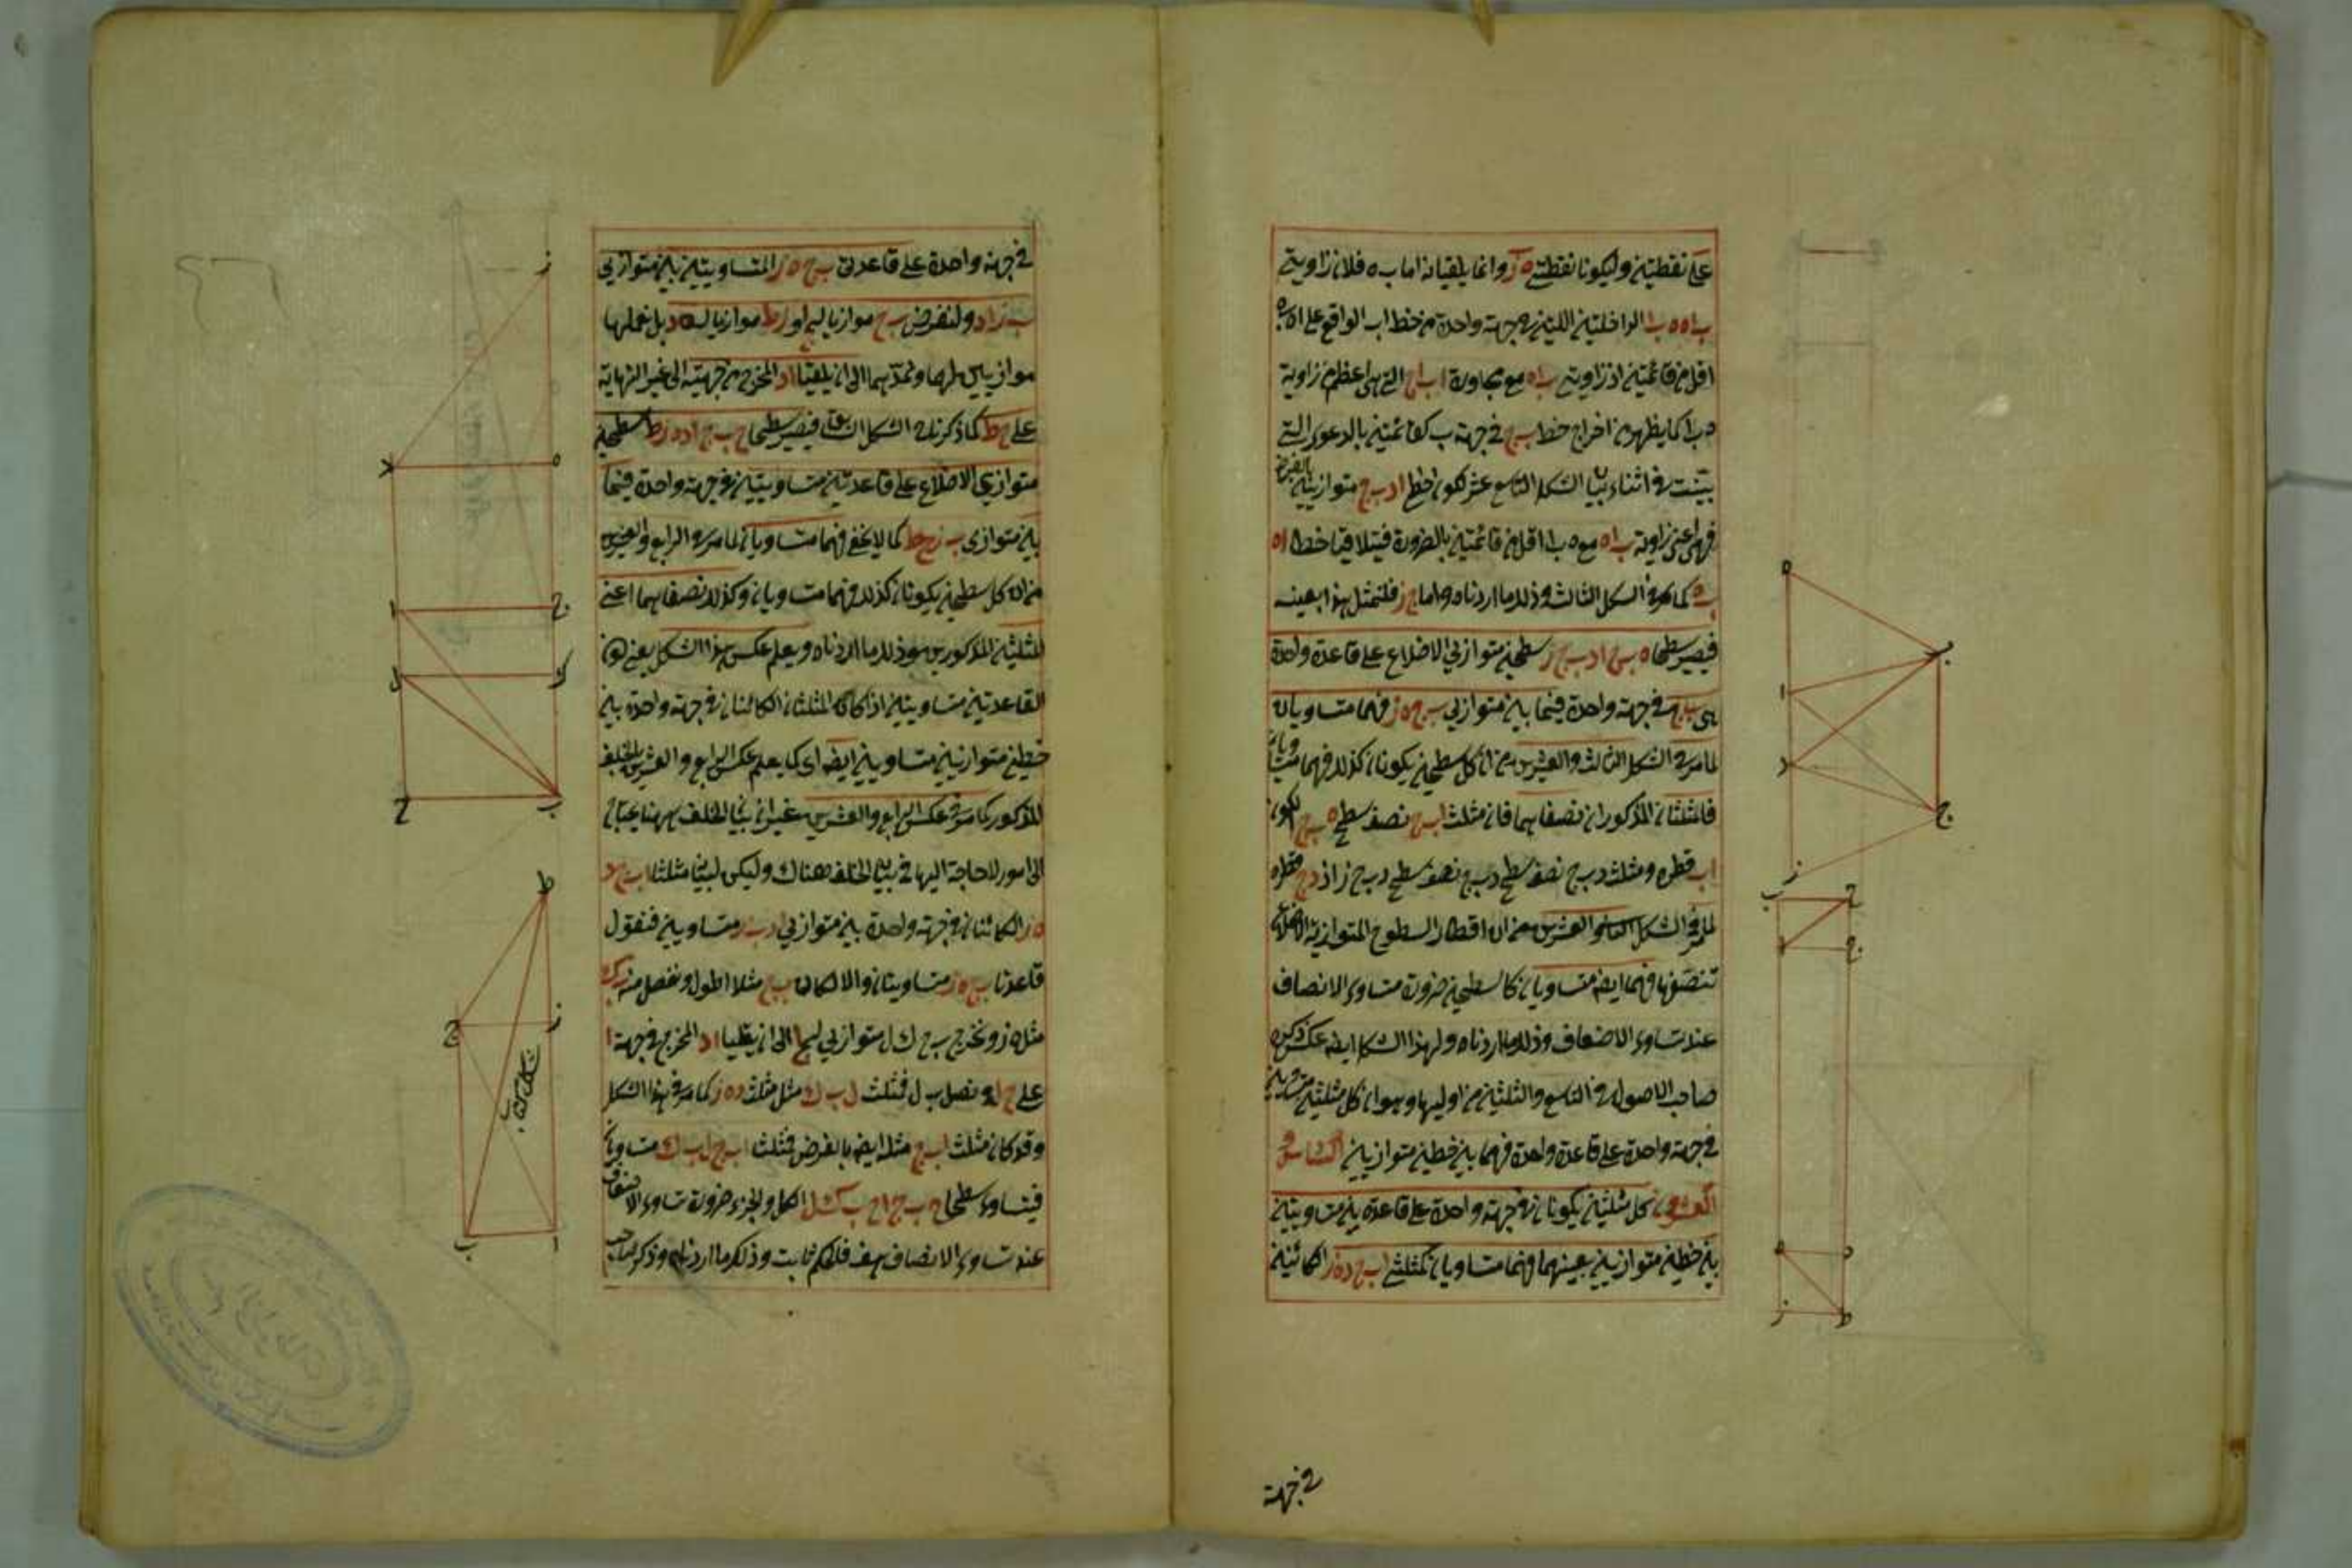 على نقطتين وليكونا نقطتي ه ز وانما يلقيانه اما ب ه فلان زاويتي
ب ا ه ه ب ا الداخلتين اللتين في جهة واحدة من خط ا ب الواقع على ا ه ب ه
اقل من قائمتين اذ زاوية ب ا ه مع مجاورة ا ب ا ج التي هي اعظم من زاوية
ه ب ا كما يظهر من اخراج خط ب ج في جهة ب كقائمتين بالدعوى التي
بينت في اثناء بيان الشكل التاسع عشر لكون خطي ا د ب ج متوازيين بالفرض
فهي اعني زاوية ب ا ه مع ه ب ا اقل من قائمتين بالضرورة فيتلاقيا خطا ا ه
ب ه كما مر في الشكل الثالث وذلك ما اردناه واما ج ز فلنمثل هذا بعينه
فيصير سطحا ه ب ج ا د ب ج ز سطحين متوازيي الاضلاع على قاعدة واحدة
هي ب ج في جهة واحدة فيما بين متوازيي ب ج ه ز فهما متساويان
لما مر في الشكل الثالث والعشرين من ان كل سطحين يكونان كذلك فهما متساويان
فالمثلثان المذكوران نصفاهما فان مثلث ا ب ج نصف سطح ه ب ج لكون
ا ب قطره ومثلث د ب ج نصف سطح د ب ج ز اذ د ج قطره
لما مر في الشكل والعشرين من ان اقطار السطوح المتوازية الاضلاع
تنصفها فهما ايضا متساويان كالسطحين ضرورة تساوى الانصاف
عند تساوى الاضعاف وذلك ما اردناه ولهذا الشكل ايضا عكس ذكره
صاحب الاصول في التاسع والثلثين من اوليها وهو ان كل مثلثين متساويين
في جهة واحدة على قاعدة واحدة فهما بين خطين متوازيين السادس و
العشرون كل مثلثين يكونان في جهة واحدة على قاعدتين متساويتين
بين خطين متوازيين بعينهما فهما متساويان كمثلثي ا ب ج د ه ز الكائنين
في جهة
في جهة واحدة على قاعدتى ب ج ه ز المتساويتين بين متوازيي
ب ز ا د ولنفرض ب ح موازيا لج ا و ز ط موازيا له د بل نجعلهما
موازيين لهما ونمدهما الى ان يلقيا ا د المخرج من جهتيه الى غير النهاية
على ح ط كما ذكرناه في الشكل السابق فيصير سطحا ح ب ج ا د ه ز ط سطحين
متوازيي الاضلاع على قاعدتين متساويتين في جهة واحدة فيما
بين متوازى ب ز ح ط كما لا يخفى فهما متساويان لما مر في الرابع والعشرين
من ان كل سطحين يكونان كذلك فهما متساويان وكذلك نصفاهما اعني
المثلثين المذكورين هو ذلك ما اردناه ويعلم عكس هذا الشكل يعني كون
القاعدتين متساويتين اذا كان المثلثان الكائنان في جهة واحدة بين
خطين متوازيين متساويين ايضا اى كما يعلم عكس الرابع والعشرين بالخلف
المذكور كما مر في عكس الرابع والعشرين غير ان بيان الخلف ههنا يحتاج
الى امور لا حاجة اليها في بيان الخلف هناك وليكن لبيانه مثلثا ا ب ج د
ه ز الكائنان في جهة واحدة بين متوازيي ا د ب ز متساويين فنقول
قاعدتا ب ج ه ز متساويتان والا لكان ب ج مثلا اطول ونفصل منه ب ك
مثل ه ز ونخرج ب ح ك ل متوازيي لج ا الى ان يلقيا ا د المخرج في جهة ا
على ح ل ونصل ب ل فمثلث ل ب ك مثل مثلث د ه ز كما مر في هذا الشكل
وقد كان مثلث ا ب ج مثله ايضا بالفرض فمثلث ا ب ج ل ب ك متساويان
فيتساوى سطحا ح ب ج ا ح ب ك ل الكل والجزء ضرورة تساوى الاضعاف
عند تساوى الانصاف هف فالحكم ثابت وذلك ما اردناه وذكر صاحب